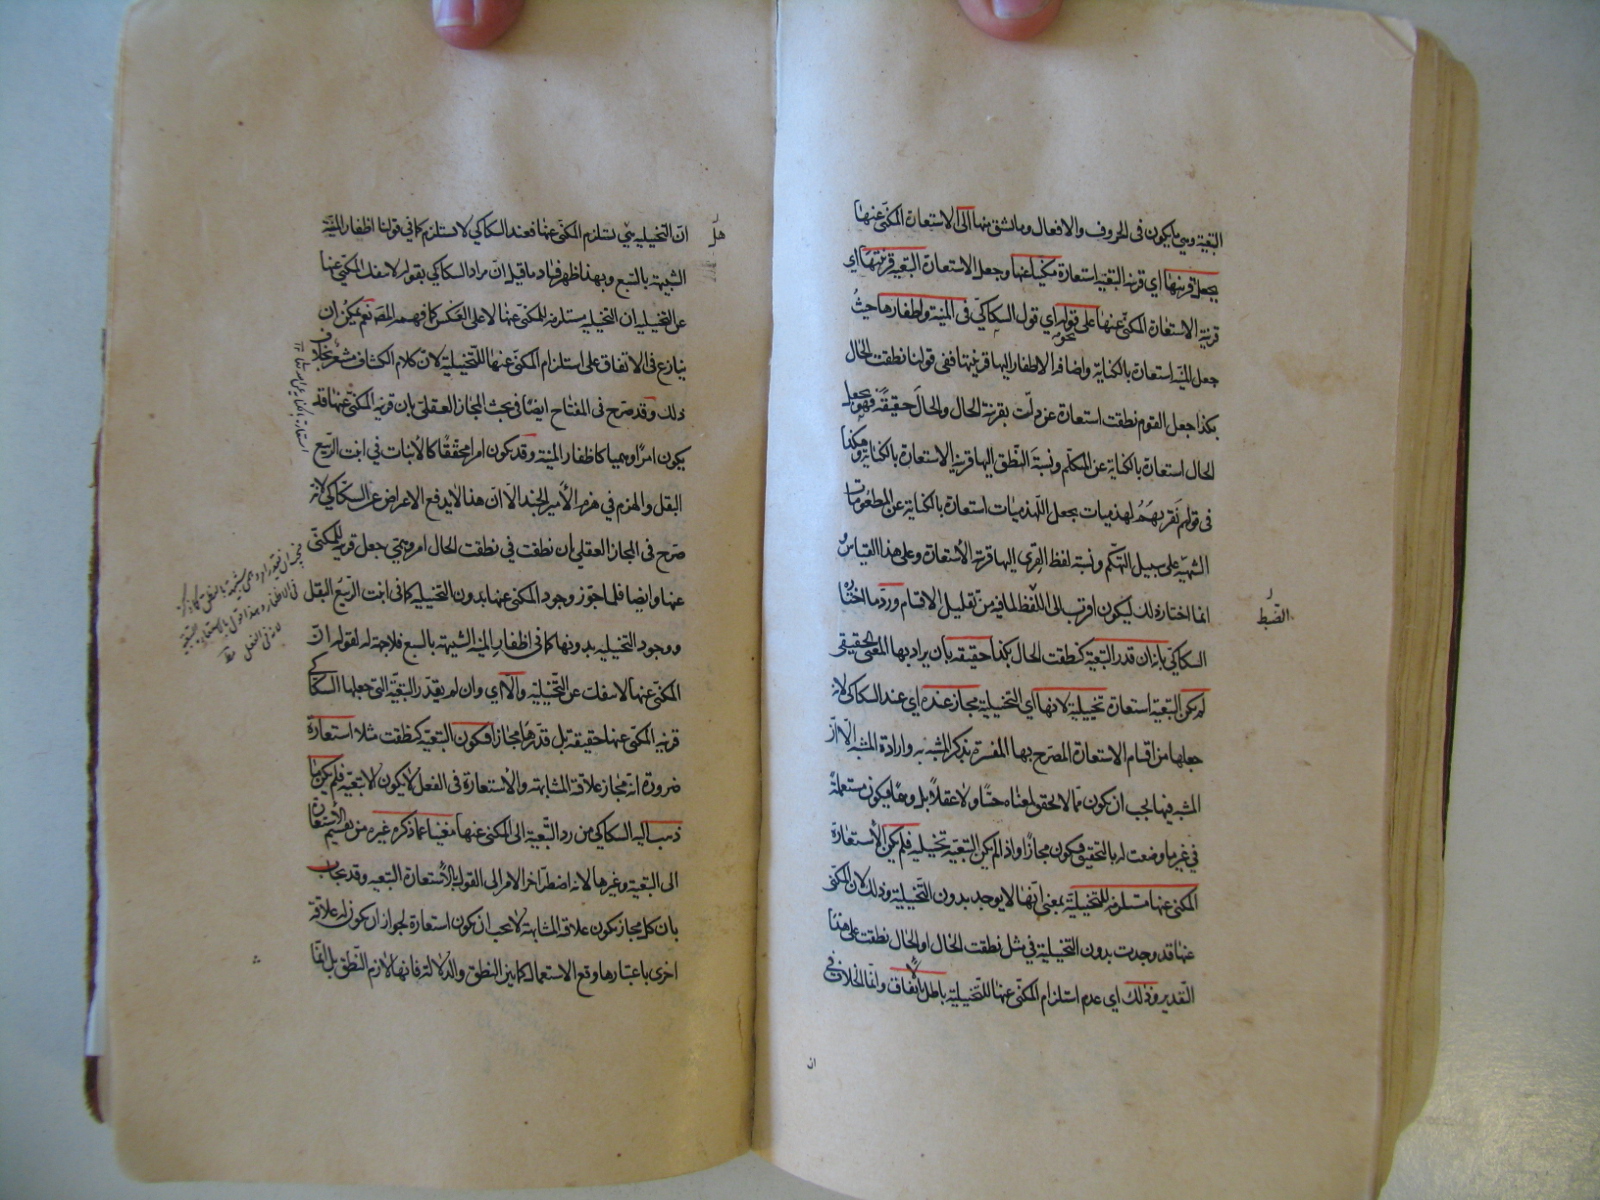 التبعية وهي ما يكون في الحروف والافعال وما يشتق منها الى الاستعارة المكنى عنها
بجعل قرينتها اي قرينة التبعية استعارة مكنيا عنها وجعل الاستعارة التبعية قرينتها اي
قرينة الاستعارة المكنى عنها على نحو قوله اي قول السكاكي في المنية واظفارها حيث
جعل المنية استعارة بالكناية واضافة الاظفار اليها قرينتها ففي قولنا نطقت الحال
بكذا جعل القوم نطقت استعارة عن دلت بقرينة الحال والحال حقيقة فهو يجعل
الحال استعارة بالكناية عن المتكلم ونسبة النطق اليها قرينة الاستعارة بالكناية وهكذا
في قولهم نقريهم لهذميات يجعل اللهذميات استعارة بالكناية عن المطعومات
الشهية على سبيل التهكم ونسبة لفظ القرى اليها قرينة الاستعارة وعلى هذا القياس و
انما اختار ذلك ليكون اقرب الى الضبط لما فيه من تقليل الاقسام ورد ما اختاره
السكاكي بانه ان قدر التبعية كنطقت الحال بكذا حقيقة بان يراد بها المعنى الحقيقي
لم يكن التبعية استعارة تخييلية لانها اي التخييلية مجاز عنده اي عند السكاكي لانه
جعلها من اقسام الاستعارة المصرح بها المفسرة بذكر المشبه به وارادة المشبه الا ان
المشبه فيها يجب ان يكون مما لا تحقق لمعناه حسا ولا عقلا بل وهما فيكون مستعملة
في غير ما وضعت له بالتحقيق فيكون مجازا واذا لم يكن التبعية تخييلية فلم يكن الاستعارة
المكنى عنها مستلزمة للتخييلية بمعنى انها لا يوجد بدون التخييلية وذلك لان المكنى
عنها قد وجدت بدون التخييلية في مثل نطقت الحال او الحال نطقت على هذا
التقدير وذلك اي عدم استلزام المكنى عنها للتخييلية باطل بالاتفاق وانما الخلاف في
الضبط
ان
ان التخييلية هل يستلزم المكنى عنها فعند السكاكي لا تستلزم كما في قولنا اظفار المنية
الشبيهة بالسبع وبهذا ظهر فساد ما قيل ان مراد السكاكي بقوله لا ينفك المكنى عنها
عن التخييلية ان التخييلية مستلزمة للمكنى عنها لا على العكس كما فهمه المصنف نعم يمكن ان
ينازع في الاتفاق على استلزام المكنى عنها للتخييلية لان كلام الكشاف مشعر بخلاف
ذلك وقد صرح في المفتاح ايضا في بحث المجاز العقلي بان قرينة المكنى عنها قد
يكون امرا وهميا كاظفار المنية وقد يكون امرا محققا كالانبات في انبت الربيع
البقل والهزم في هزم الامير الجند الا ان هذا لا يدفع الاعتراض عن السكاكي لانه
صرح في المجاز العقلي بان نطقت في نطقت الحال امر وهمي جعل قرينة للمكنى
عنها وايضا فلما جوز وجود المكنى عنها بدون التخييلية كما في انبت الربيع البقل
ووجود التخييلية بدونها كما في اظفار المنية الشبيهة بالسبع فلا جهة لقوله ان
المكنى عنها لا ينفك عن التخييلية والا اي وان لم يقدر التبعية التي جعلها السكاكي
قرينة المكنى عنها حقيقة بل قدرها مجازا فيكون التبعية كنطقت مثلا استعارة
ضرورة انه مجاز علاقته المشابهة والاستعارة في الفعل لا يكون الا تبعية فلم يكن ما
ذهب اليه السكاكي من رد التبعية الى المكنى عنها مغنيا عما ذكره غيره من تقسيم الاستعارة
الى التبعية وغيرها لانه اضطر آخر الامر الى القول بالاستعارة التبعية وقد يجاب
بان كل مجاز يكون علاقته المشابهة لا يجب ان يكون استعارة لجواز ان يكون له علاقة
اخرى باعتبارها وقع الاستعمال كما بين النطق والدلالة فانها لازم النطق بل انما
هل